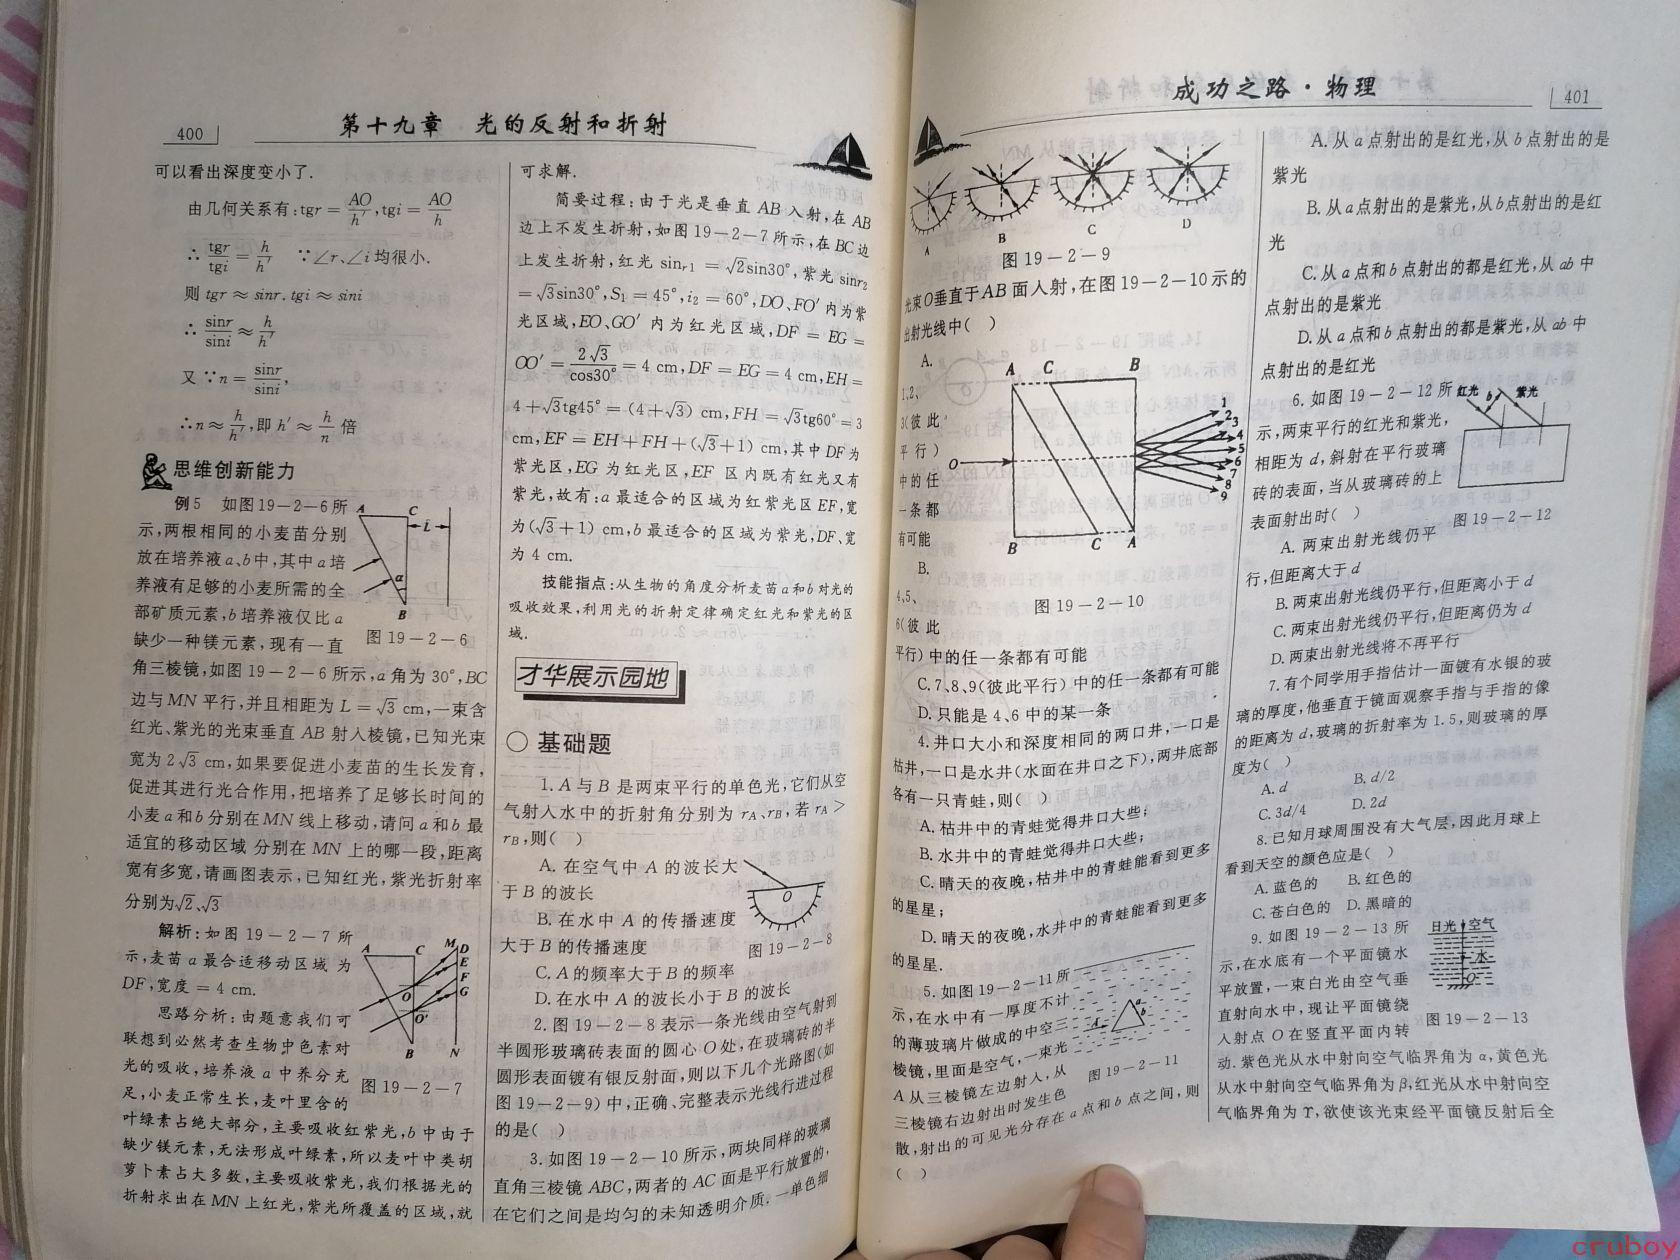 400
第十九章 光的反射和折射
可以看出深度变小了.
由几何关系有:tgr = AO/h′, tgi = AO/h
∴ tgr/tgi = h/h′ ∵∠r、∠i均很小.
则 tgr ≈ sinr. tgi ≈ sini
∴ sinr/sini ≈ h/h′
又 ∵n = sinr/sini,
∴n ≈ h/h′,即 h′ ≈ h/n 倍
思维创新能力
例5 如图19-2-6所
示,两根相同的小麦苗分别
放在培养液a、b中,其中a培
养液有足够的小麦所需的全
部矿质元素,b培养液仅比a
缺少一种镁元素,现有一直
A C L a B
图 19-2-6
角三棱镜,如图 19-2-6 所示,a角为 30°,BC
边与MN平行,并且相距为 L = √3 cm,一束含
红光、紫光的光束垂直 AB 射入棱镜,已知光束
宽为 2√3 cm,如果要促进小麦苗的生长发育,
促进其进行光合作用,把培养了足够长时间的
小麦 a 和 b 分别在MN 线上移动,请问 a和b 最
适宜的移动区域 分别在 MN 上的哪一段,距离
宽有多宽,请画图表示,已知红光,紫光折射率
分别为√2、√3
解析:如图 19-2-7 所
示,麦苗 a 最合适移动区域 为
DF,宽度 = 4 cm.
思路分析:由题意我们可
联想到必然考查生物中色素对
光的吸收,培养液 a 中养分充
足,小麦正常生长,麦叶里含的
A C M D E F G O O′ B N
图 19-2-7
叶绿素占绝大部分,主要吸收红紫光,b 中由于
缺少镁元素,无法形成叶绿素,所以麦叶中类胡
萝卜素占大多数,主要吸收紫光,我们根据光的
折射求出在 MN 上红光,紫光所覆盖的区域,就
可求解.
简要过程:由于光是垂直 AB 入射,在 AB
边上不发生折射,如图 19-2-7 所示,在 BC 边
上发生折射,红光 sinr1 = √2sin30°,紫光 sinr2
= √3sin30°,S1 = 45°,i2 = 60°,DO、FO′ 内为紫
光区域,EO、GO′ 内为红光区域,DF = EG =
OO′ = 2√3/cos30° = 4 cm,DF = EG = 4 cm,EH =
4+√3tg45° = (4+√3) cm,FH = √3tg60° = 3
cm,EF = EH+FH+(√3+1) cm,其中 DF 为
紫光区,EG 为红光区,EF 区内既有红光又有
紫光,故有:a 最适合的区域为红紫光区 EF,宽
为(√3+1) cm,b 最适合的区域为紫光,DF、宽
为 4 cm.
技能指点:从生物的角度分析麦苗 a 和 b 对光的
吸收效果,利用光的折射定律确定红光和紫光的区
域.
才华展示园地
○ 基础题
1. A 与 B 是两束平行的单色光,它们从空
气射入水中的折射角分别为 rA、rB,若 rA >
rB,则( )
A. 在空气中 A 的波长大
于 B 的波长
B. 在水中 A 的传播速度
大于 B 的传播速度
C. A 的频率大于 B 的频率
D. 在水中 A 的波长小于 B 的波长
O
图 19-2-8
2. 图 19-2-8 表示一条光线由空气射到
半圆形玻璃砖表面的圆心 O 处,在玻璃砖的半
圆形表面镀有银反射面,则以下几个光路图(如
图 19-2-9) 中,正确、完整表示光线行进过程
的是( )
3. 如图 19-2-10 所示,两块同样的玻璃
直角三棱镜 ABC,两者的 AC 面是平行放置的,
在它们之间是均匀的未知透明介质. 一单色细
成功之路·物理
401
A B C D
图 19-2-9
光束 O垂直于AB 面入射,在图 19-2-10示的
出射光线中( )
A.
1、2、
3(彼此
平行)
中的任
一条都
有可能
B.
4、5、
6(彼此
A C B
O
1 2 3 4 5 6 7 8 9
B C A
图 19-2-10
平行) 中的任一条都有可能
C. 7、8、9(彼此平行) 中的任一条都有可能
D. 只能是 4、6 中的某一条
4. 井口大小和深度相同的两口井,一口是
枯井,一口是水井(水面在井口之下),两井底部
各有一只青蛙,则( )
A. 枯井中的青蛙觉得井口大些;
B. 水井中的青蛙觉得井口大些;
C. 晴天的夜晚,枯井中的青蛙能看到更多
的星星;
D. 晴天的夜晚,水井中的青蛙能看到更多
的星星.
5. 如图 19-2-11 所
示,在水中有一厚度不计
的薄玻璃片做成的中空三
棱镜,里面是空气,一束光
A 从三棱镜左边射入,从
三棱镜右边射出时发生色
A a b
图 19-2-11
散,射出的可见光分存在 a 点和 b 点之间,则
( )
A. 从 a 点射出的是红光,从 b 点射出的是
紫光
B. 从 a点射出的是紫光,从b点射出的是红
光
C. 从 a 点和 b 点射出的都是红光,从 ab 中
点射出的是紫光
D. 从 a 点和 b 点射出的都是紫光,从 ab 中
点射出的是红光
6. 如图 19-2-12 所
示,两束平行的红光和紫光,
相距为 d,斜射在平行玻璃
砖的表面,当从玻璃砖的上
表面射出时( )
红光 b 紫光
图 19-2-12
A. 两束出射光线仍平
行,但距离大于 d
B. 两束出射光线仍平行,但距离小于 d
C. 两束出射光线仍平行,但距离仍为 d
D. 两束出射光线将不再平行
7. 有个同学用手指估计一面镀有水银的玻
璃的厚度,他垂直于镜面观察手指与手指的像
的距离为 d,玻璃的折射率为 1.5,则玻璃的厚
度为( )
A. d B. d/2
C. 3d/4 D. 2d
8. 已知月球周围没有大气层,因此月球上
看到天空的颜色应是( )
A. 蓝色的 B. 红色的
C. 苍白色的 D. 黑暗的
9. 如图 19-2-13 所
示,在水底有一个平面镜水
平放置,一束白光由空气垂
直射向水中,现让平面镜绕
入射点 O 在竖直平面内转
日光 空气 水 O
图 19-2-13
动. 紫色光从水中射向空气临界角为 α,黄色光
从水中射向空气临界角为 β,红光从水中射向空
气临界角为 γ,欲使该光束经平面镜反射后全
cruboy